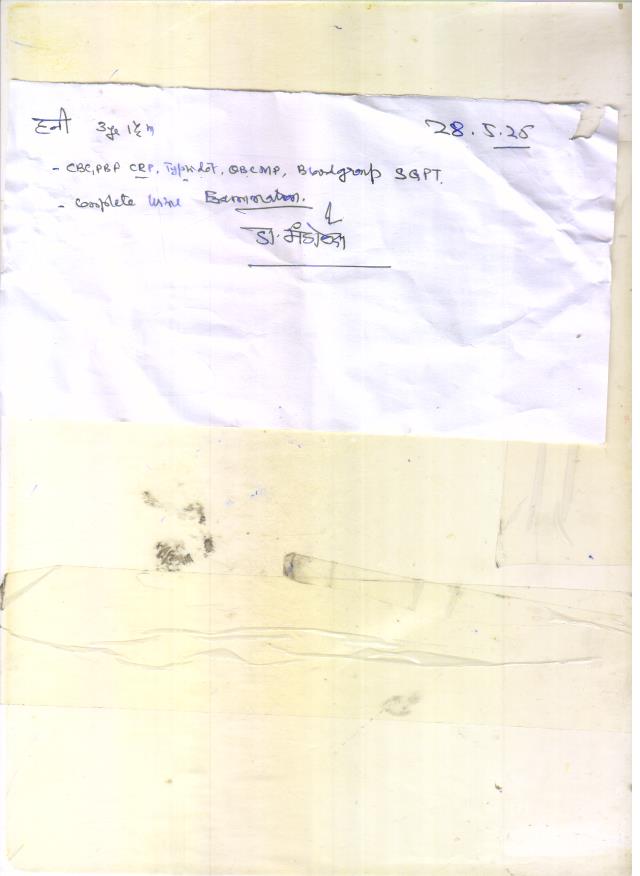 हनी 28.5.25
- CBC, PBP CRP, Typhidot, QBCMP, Bloodgroup SGPT.
- Complete Urine Examination.
डा.